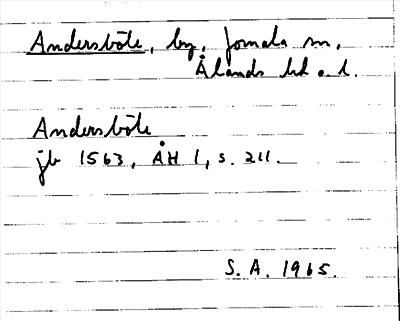 Andersböte, by, Jomala sn,
Ålands hd o. l.
Andersböte
jb 1563, ÅH 1, s. 211.
S. A. 1965.